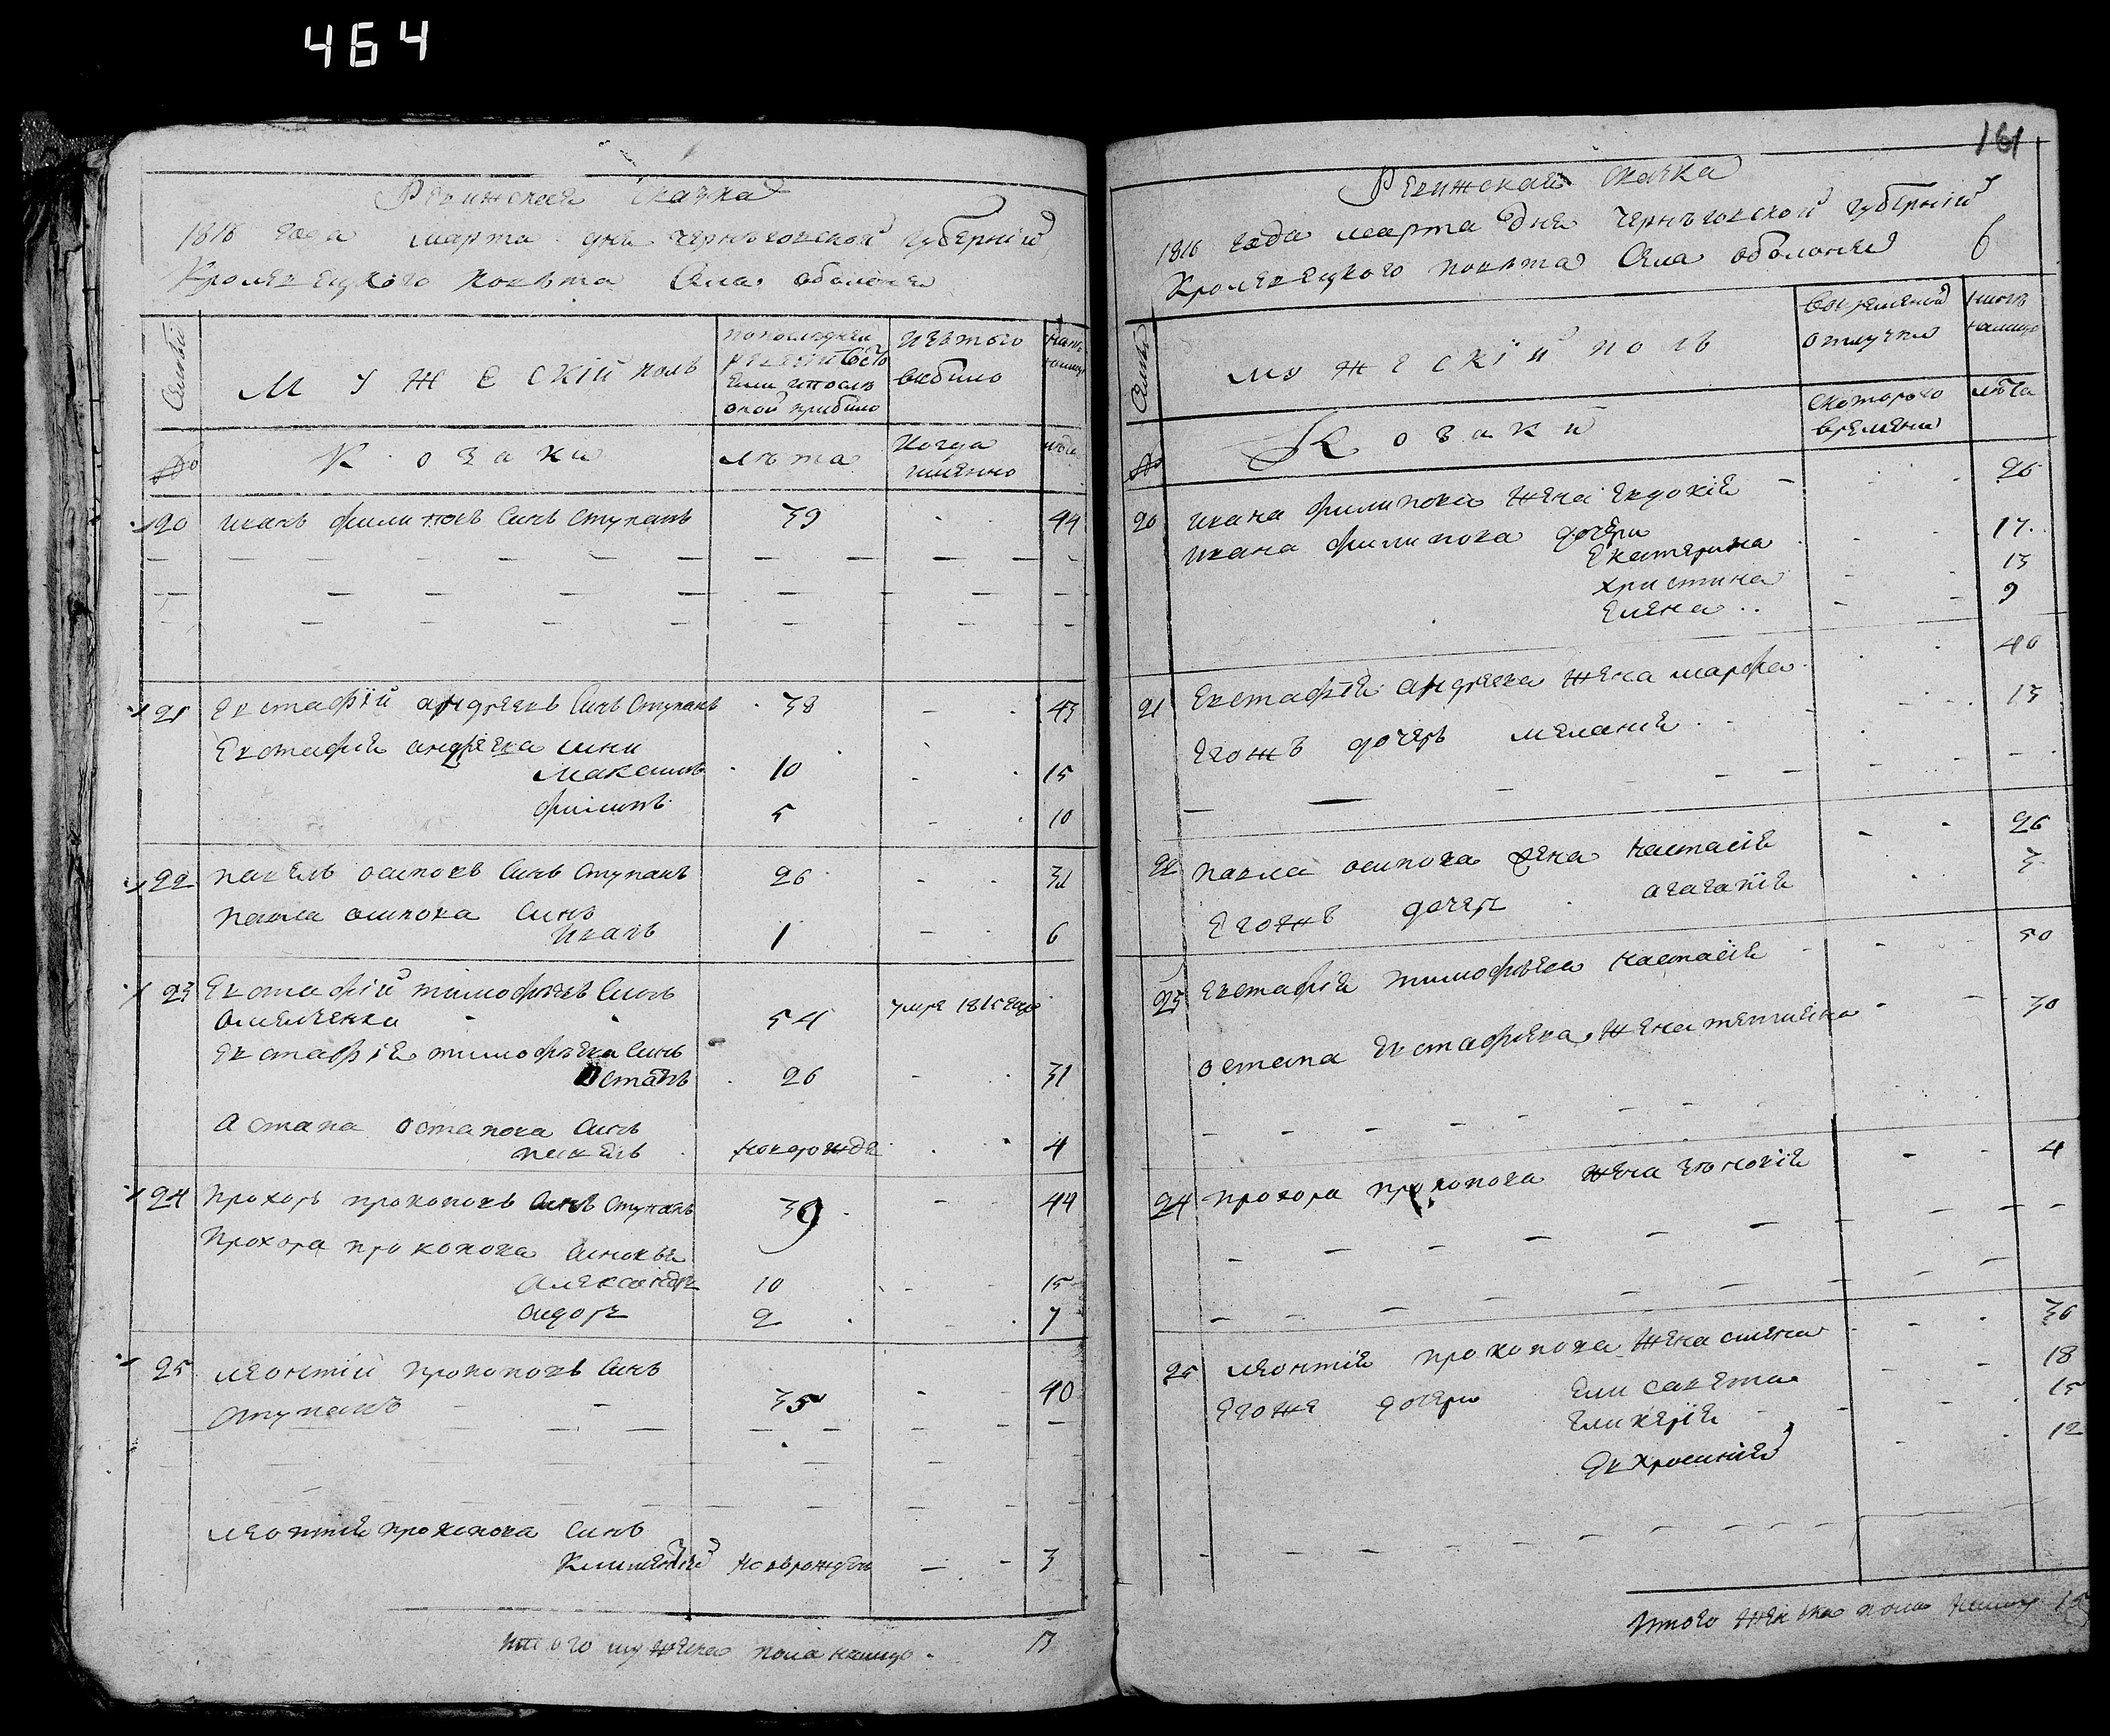 464
Ревижская сказка
1816 года марта дня черниговской губернии
Кролевецкого повѣта Села оболоння
Семьи
МУЖЕСКІЙ полъ
по последней ревизіи состояло или после оной прибыло
Изъ того выбыло
Нынѣ налицо
№
Козаки
лѣта
Когда именно
лѣта
20 иванъ филиповъ синъ ступакъ 39 - - 44
21 Евстафій андреевъ Синъ Ступакъ 38 - 43
Евстафія андреева сини
Максимъ 10 - 15
филипъ 5 - 10
22 павелъ осиповъ Синъ Ступакъ 26 - - 31
павла осипова Синъ
иванъ 1 - 6
23 Евстафій тимофѣевъ Синъ
омелченко 54 умре 1815 года
Евстафія тимофѣева Синъ
Остапъ 26 - 31
Остапа остапова Синъ
павелъ новорожде 4
24 прохоръ прокоповъ Синъ Ступакъ 39 - 44
Прохора прокопова Синовья
александръ 10 - 15
сидоръ 2 - 7
25 леонтій прокоповъ Синъ
Ступакъ - - 35 - 40
леонтія прокопова Синъ
Климентій новорожден - - 3
Итого мужеска пола налицо 13
161
Ревижская сказка
1816 года марта дня черниговской губерніи
Кролевецкого повѣта Села оболоння 6
Семьи
мужескій полъ
Во временной отлучке
нынѣ налицо
№
Козаки
Скоторого времени
лѣта
20 ивана филипова жена евдокія - 26
ивана филипова дочери
Екатерина 17
христина 13
Елена 9
21 Евстафія андреева жена марфа 40
Егожъ дочерь меланія 13
22 павла осипова жена настасія - - 26
Егожъ дочерь агафія 3
23 Евстафія тимофѣева настасія - - 50
остапа Евстафіева жена татияна - - 30
24 прохора прокопова жена - - 4
25 леонтія прокопова жена 36
Егоже дочери елисавета 18
гликерія 15
Евхросинія 12
Итого женска пола налицо 15